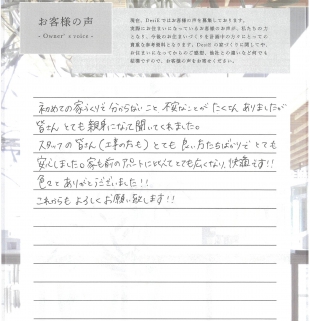 お客様の声
- Owner's voice -
現在、DesiEではお客様の声を募集しております。
実際にお住まいになっているお客様のお声が、私たちの力
となり、今後のお住まいづくりを計画中の方々にとっての
貴重な参考資料となります。DesiEの家づくりに関してや、
お住まいになってからのご感想、他社との違いなど何でも
結構ですので、お客様の声をお聞かせください。
初めての家づくりで分からないこと 不安なことが たくさん ありましたが
皆さん とても 親身になって聞いてくれました。
スタッフの皆さん(工事の方も) とても 良い方たちばかりで とても
安心しました。家も前のアパートに比べて とても広くなり、快適です!!
色々と ありがとうございました!!
これからも よろしく お願い致します!!